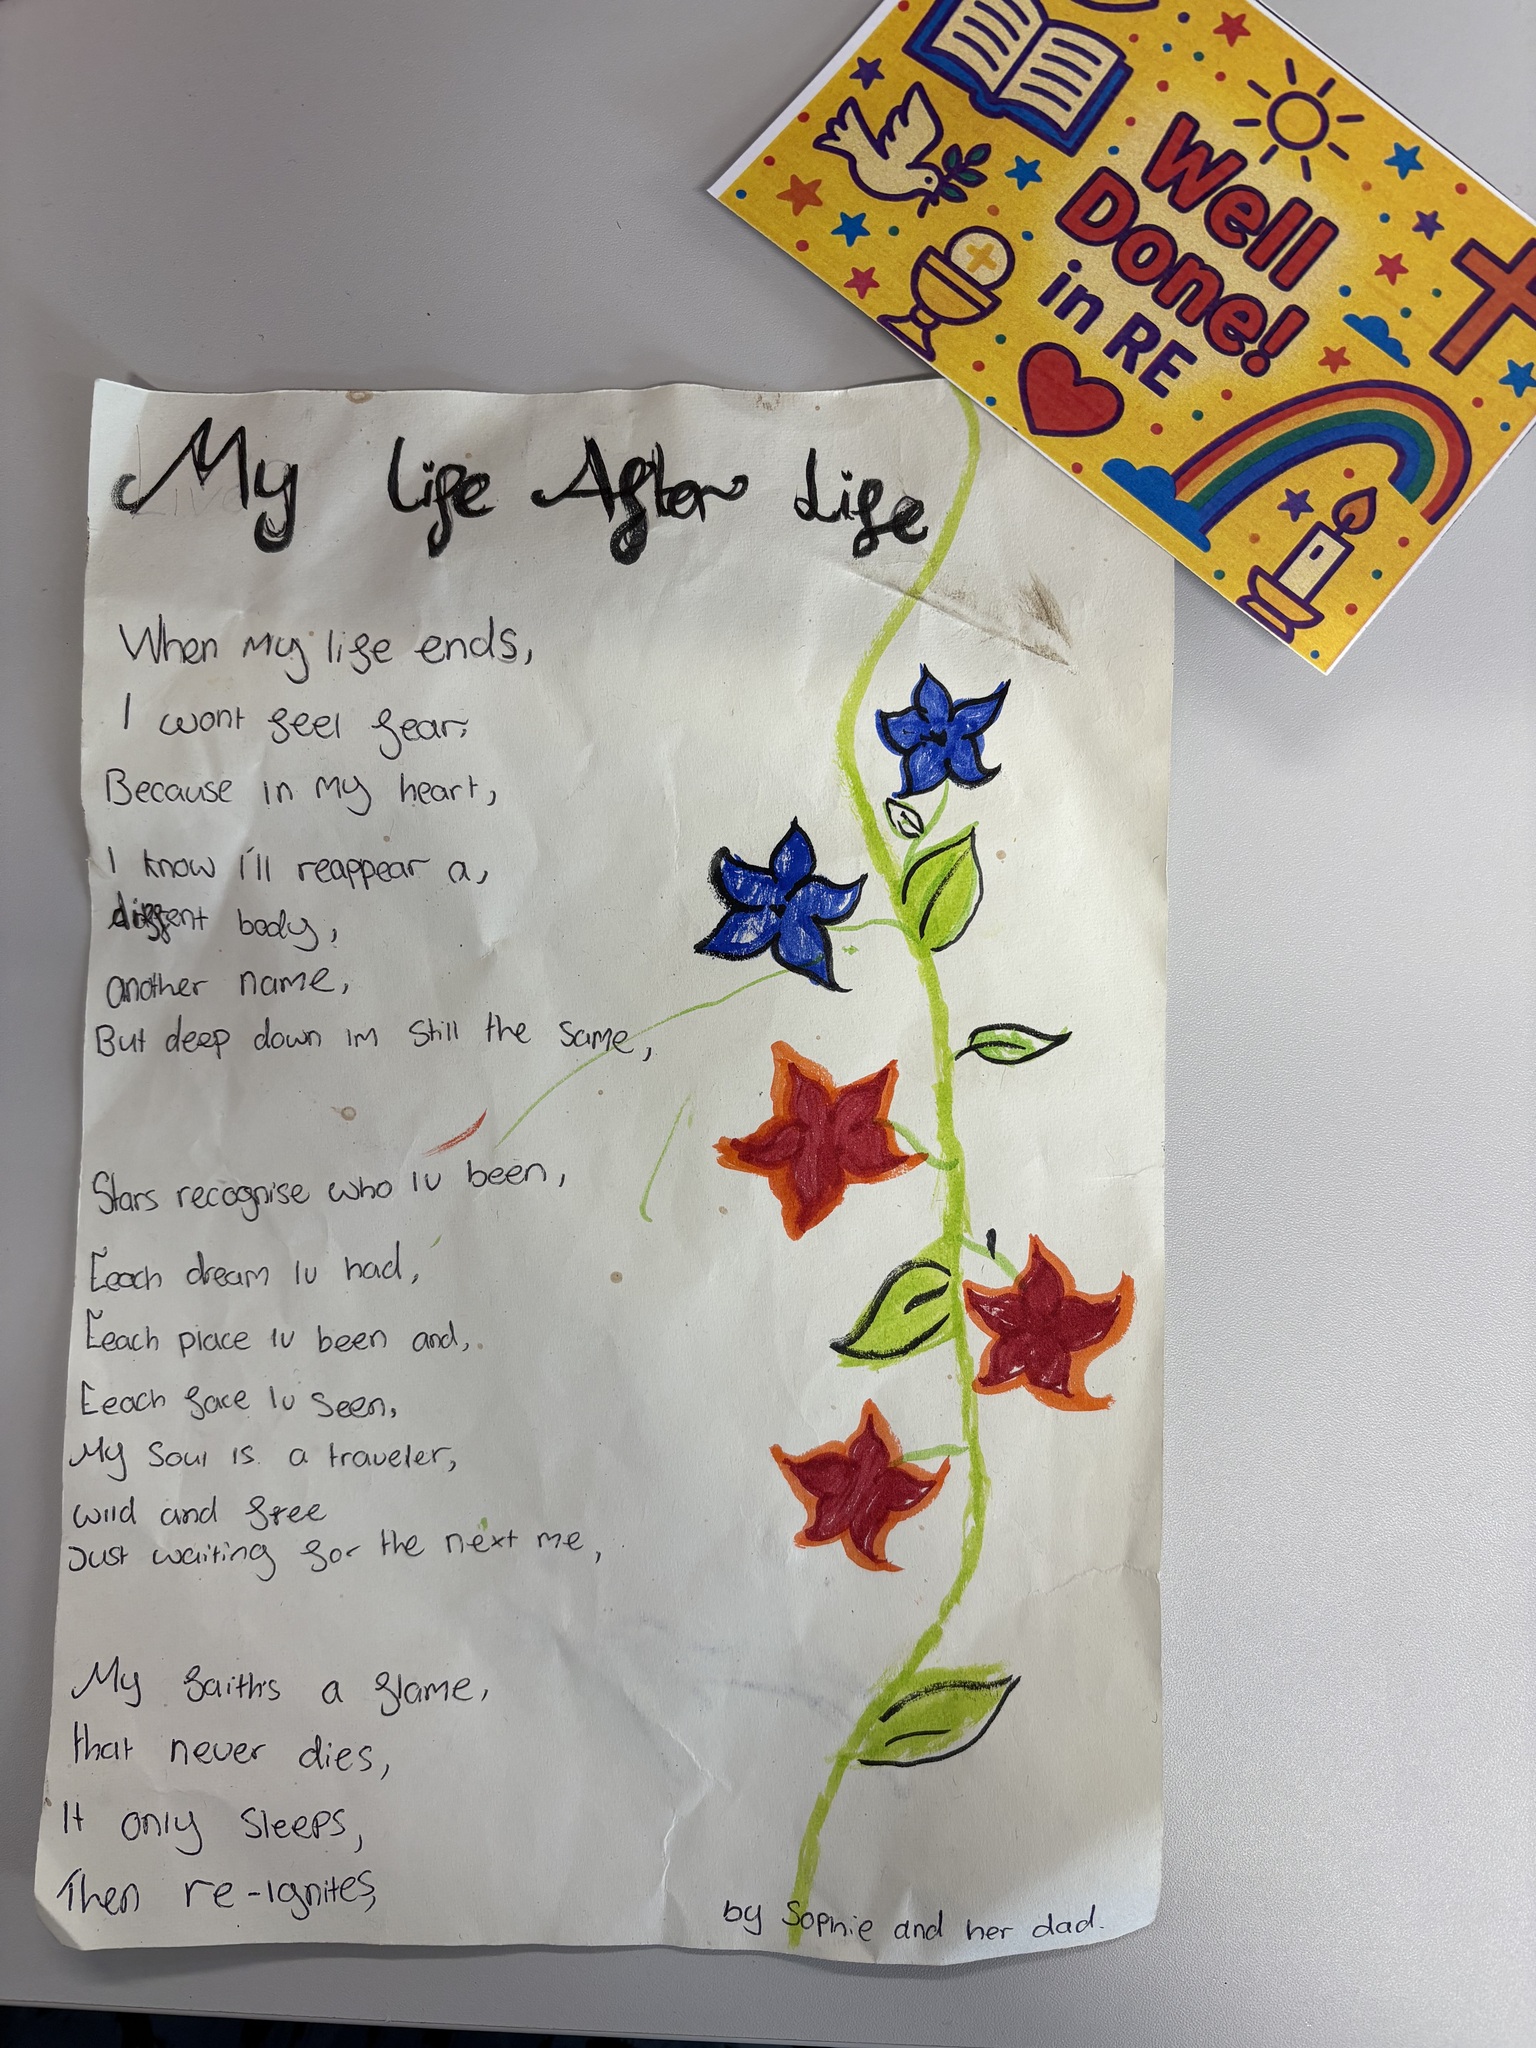 Well
Done!
in RE
My Life After Life
When my life ends,
I wont feel fear,
Because in my heart,
I know I'll reappear a,
diffent body,
another name,
But deep down im still the same,
Stars recognise who iv been,
Eeach dream iv had,
Eeach place iv been and,
Eeach face iv seen,
My soul is a traveler,
wild and free
Just waiting for the next me,
My faith's a flame,
that never dies,
It only sleeps,
Then re-ignites,
by Sophie and her dad.